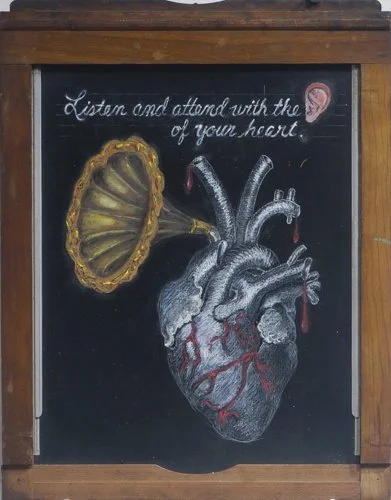 Listen and attend with the
of your heart.